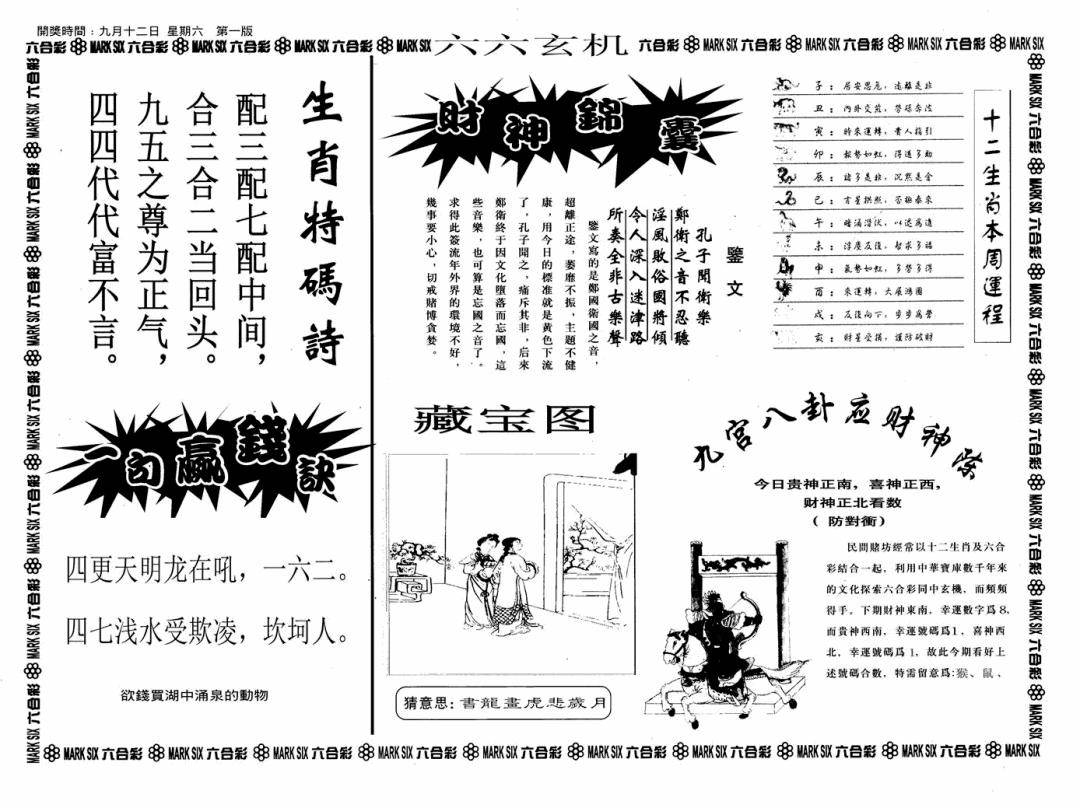 開獎時間：九月十二日 星期六 第一版
六六玄机
六合彩 MARK SIX 六合彩 MARK SIX 六合彩 MARK SIX 六合彩 MARK SIX
六合彩 MARK SIX 六合彩 MARK SIX 六合彩 MARK SIX 六合彩 MARK SIX
生肖特碼詩
配三配七配中间，
合三合二当回头。
九五之尊为正气，
四四代代富不言。
一句贏錢訣
四更天明龙在吼，一六二。
四七浅水受欺凌，坎坷人。
欲錢買湖中涌泉的動物
財神錦囊
鑒文
孔子聞衛樂
鄭衛之音不忍聽
淫風敗俗國將傾
令人深入迷津路
所奏全非古樂聲
鑒文寫的是鄭國衛國之音，
超離正途，萎靡不振，主題不健
康，用今日的標准就是黃色下流
了，孔子聞之，痛斥其非，后來
鄭衛終于因文化墮落而忘國，這
些音樂，也可算是忘國之音了。
求得此簽流年外界的環境不好，
幾事要小心，切戒賭博貪婪。
藏宝图
猜意思：書龍畫虎悲歲月
十二生肖本周運程
子：居安思危，遠離是非
丑：內外交煎，勞碌奔波
寅：時來運轉，貴人指引
卯：報勢如虹，得道多助
辰：諸多是非，沉默是金
巳：吉星拱照，否極泰來
午：暗涌潛伏，以退為進
未：浮塵反復，智求多福
申：氣勢如虹，多勞多得
酉：來運轉，大展鴻圖
戌：反復向下，步步為營
亥：財星受損，謹防破財
九宫八卦应财神榮
今日贵神正南，喜神正西，
财神正北看数
（防對衝）
民間賭坊經常以十二生肖及六合
彩結合一起，利用中華寶庫數千年來
的文化探索六合彩同中玄機，而頻頻
得手。下期財神東南，幸運數字爲8，
而貴神西南，幸運號碼爲1，喜神西
北，幸運號碼爲1，故此今期看好上
述號碼合數，特需留意爲：猴、鼠、
六合彩 MARK SIX 六合彩 MARK SIX 六合彩 MARK SIX 六合彩 MARK SIX 六合彩 MARK SIX 六合彩 MARK SIX 六合彩 MARK SIX 六合彩 MARK SIX 六合彩 MARK SIX 六合彩 MARK SIX